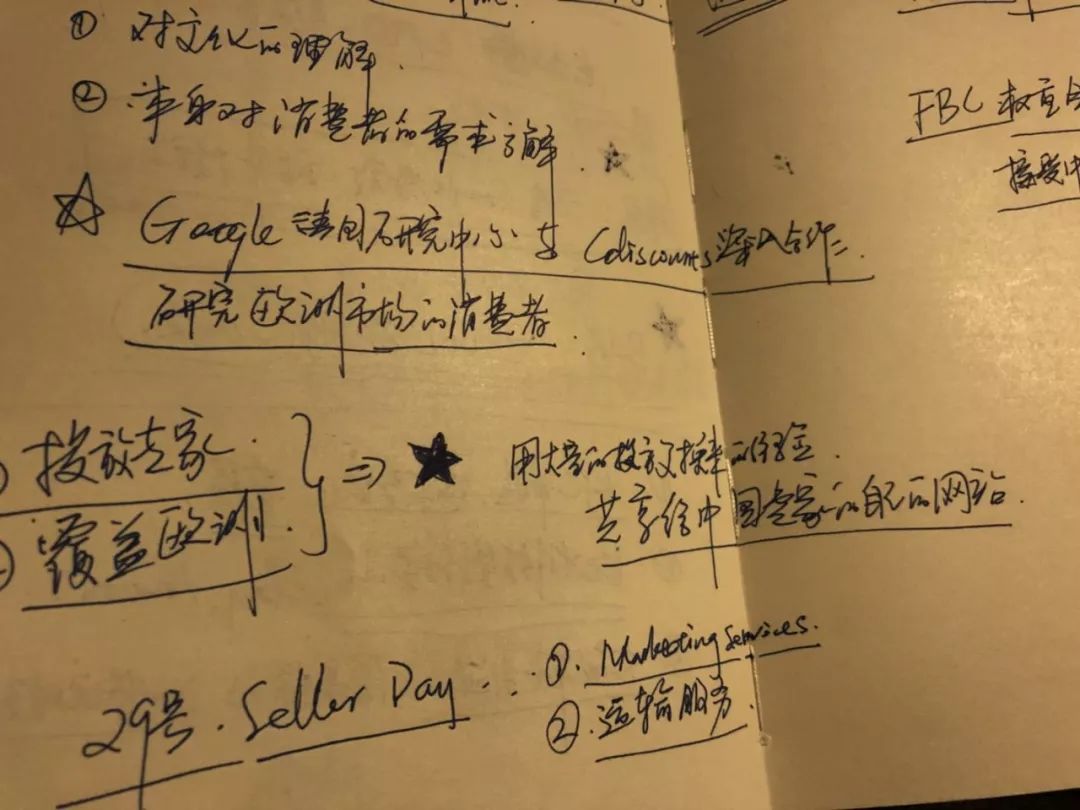 ① 对文化的理解.
② 本身对消费者的需求了解.
Google 法国研究中心与 Cdiscounts 深入合作.
研究欧洲市场的消费者.
投放专家.
覆盖欧洲.
⇒ 用大量的投放换来的经验.
共享给中国卖家的自己的网站.
29号. Seller Day ...
①. Marketing Services.
②. 运输服务.
FBC 权重
接受中